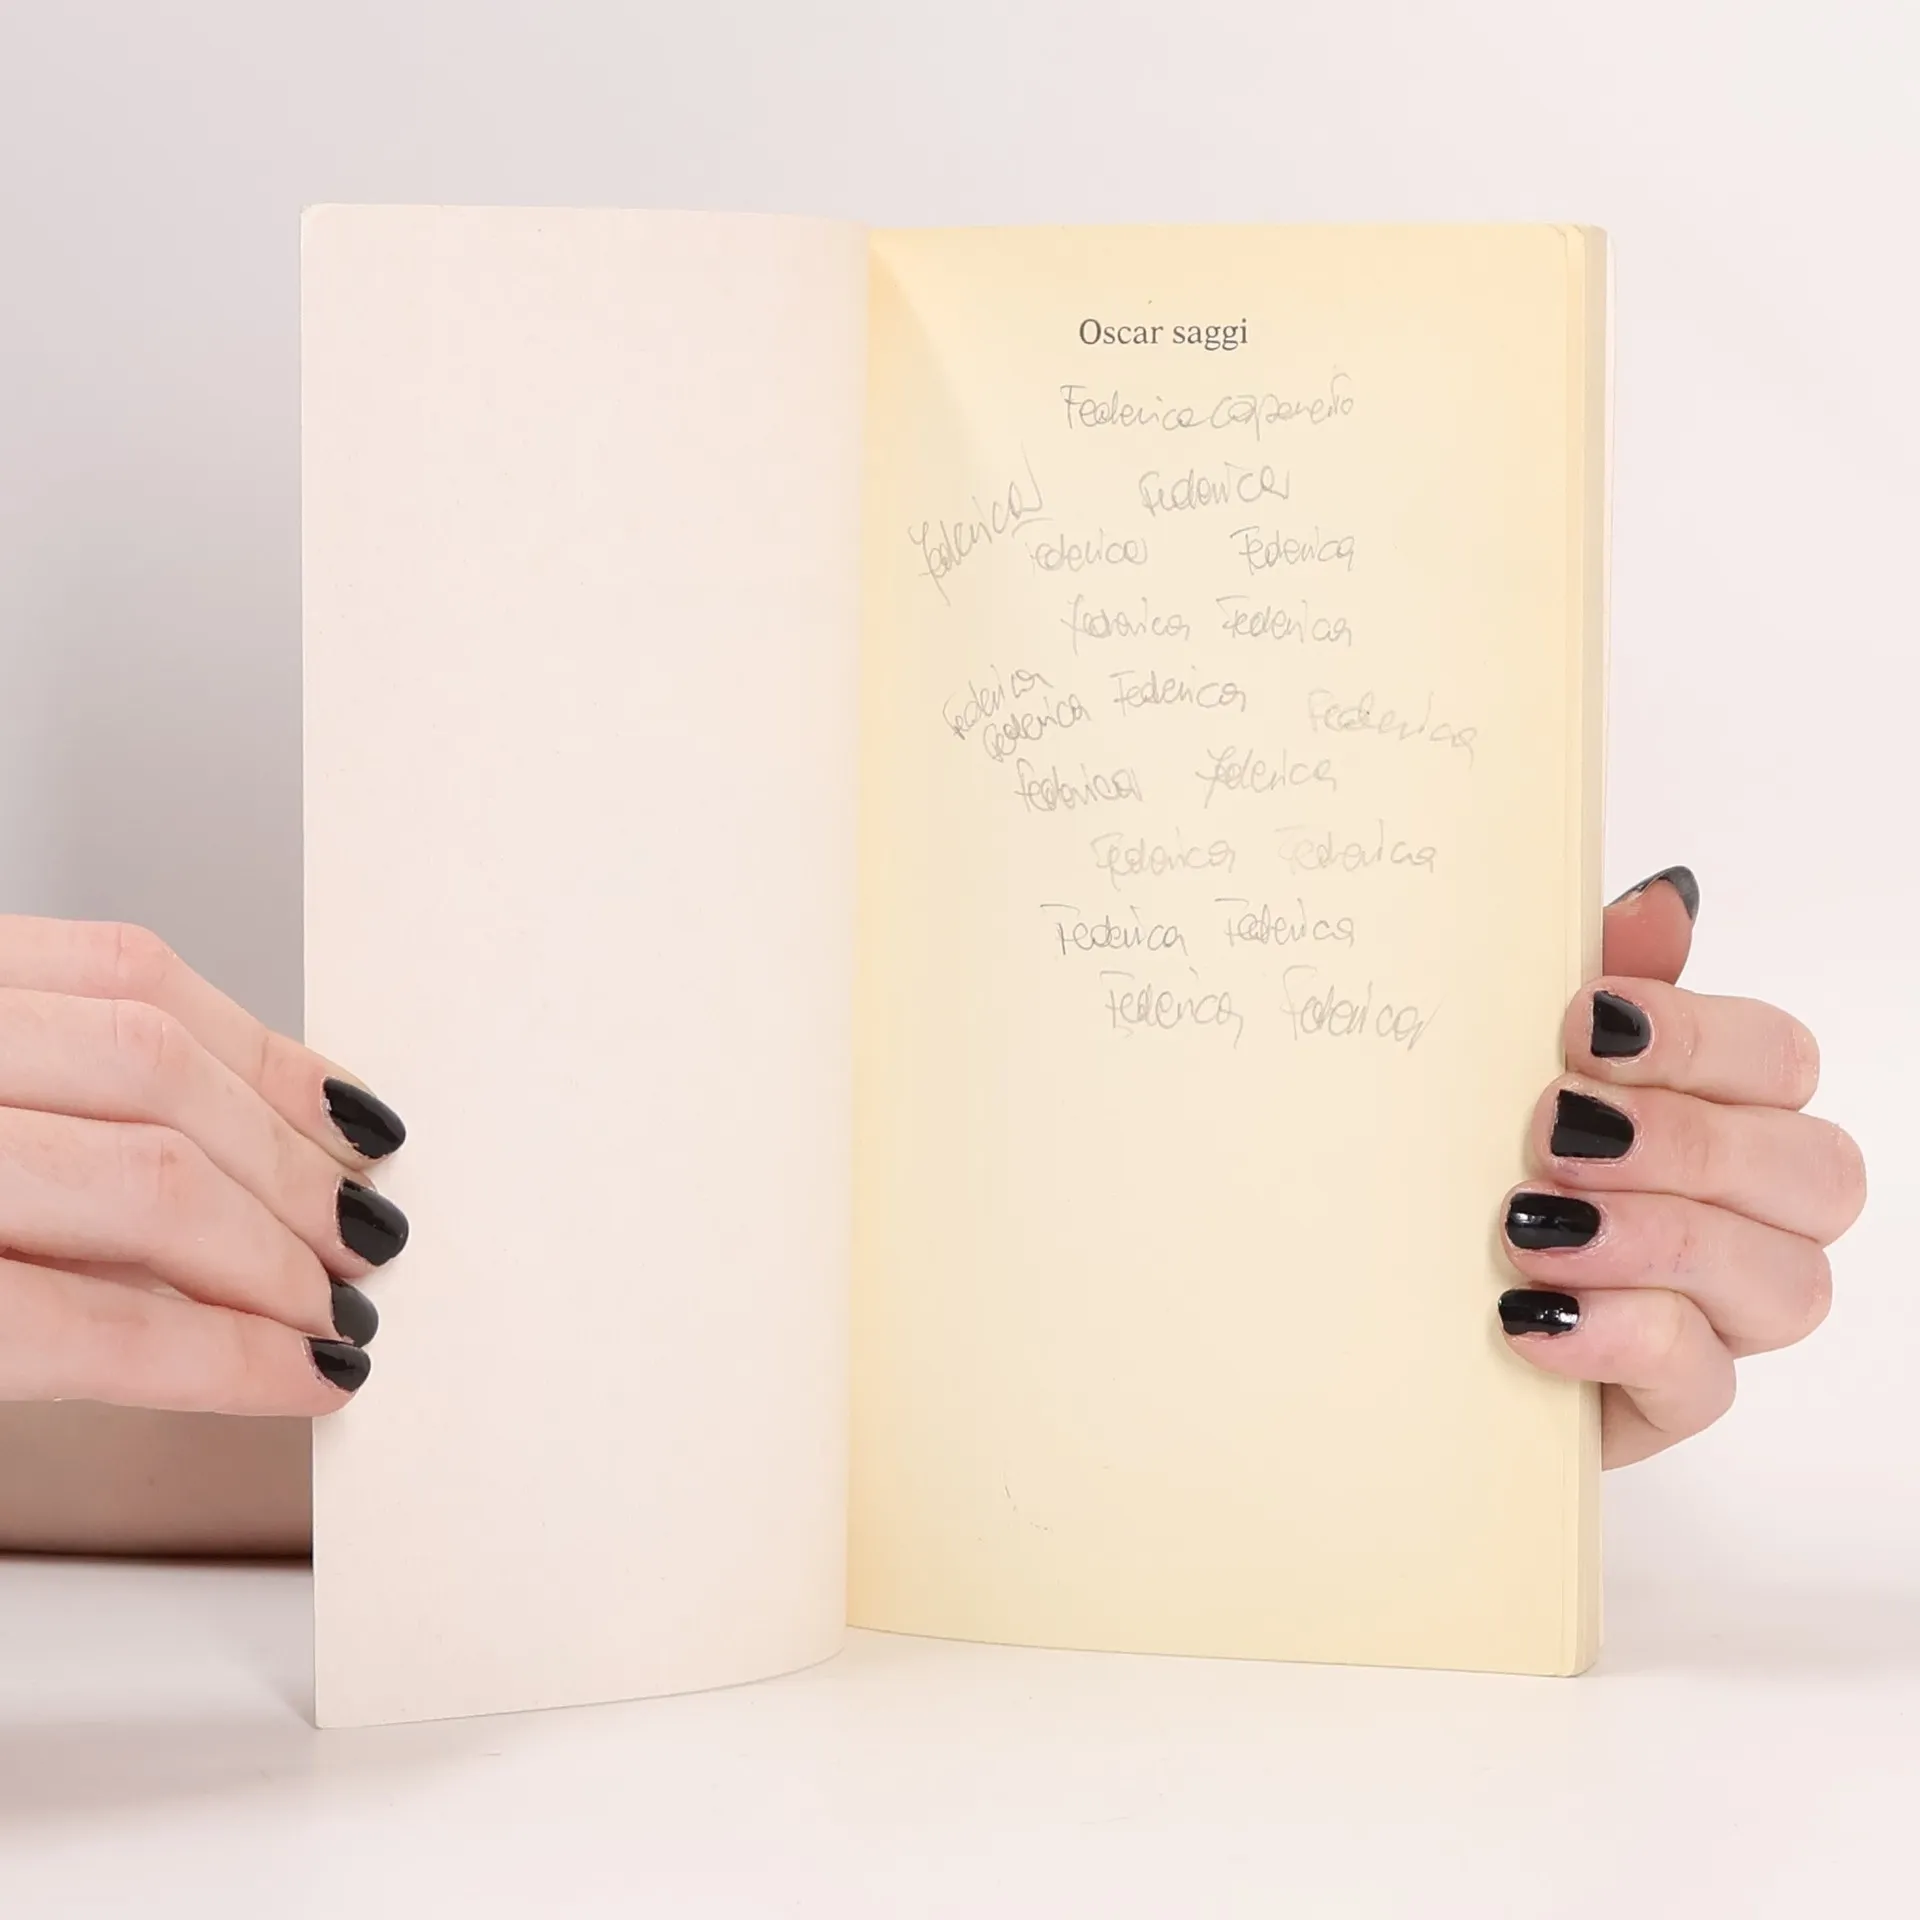 Oscar saggi
Federica
Federica
Federica
Federica Federica
Federica Federica
Federica
Federica Federica Federica
Federica Federica
Federica Federica
Federica Federica
Federica Federica